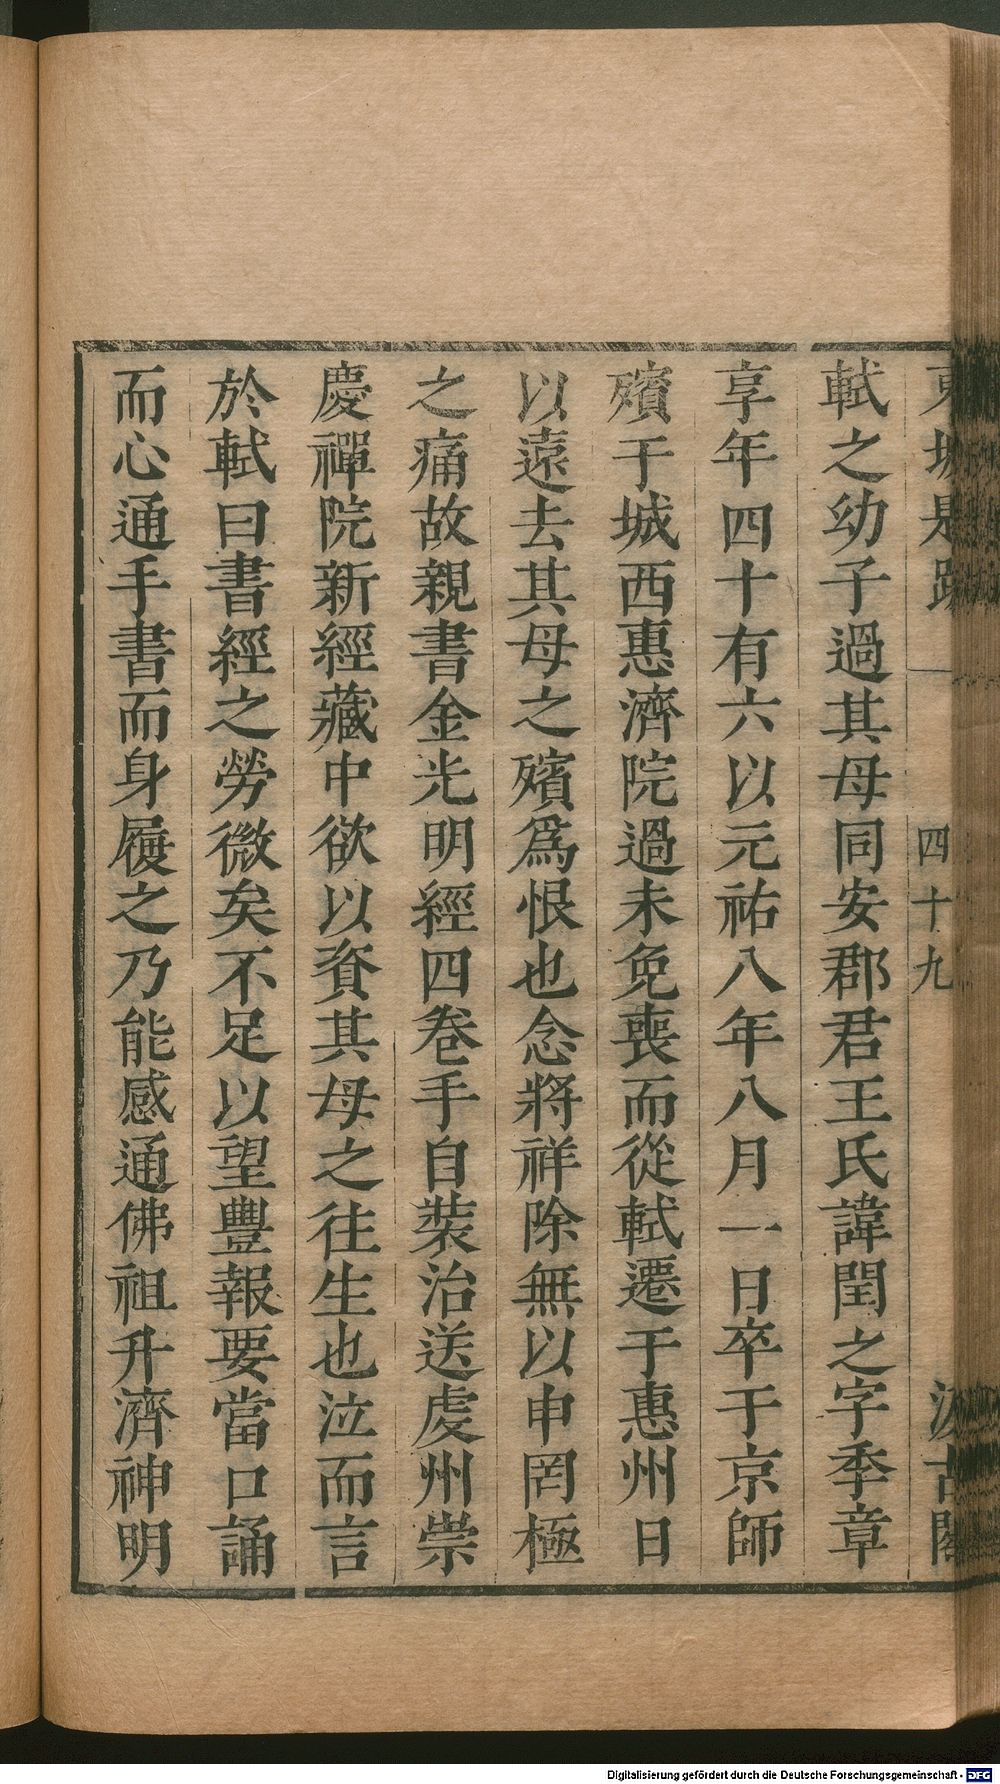 東坡題跋 一 四十九 汲古閣
軾之幼子過其母同安郡君王氏諱閏之字季章
享年四十有六以元祐八年八月一日卒于京師
殯于城西惠濟院過未免喪而從軾遷于惠州日
以遠去其母之殯爲恨也念將祥除無以申罔極
之痛故親書金光明經四卷手自裝治送虔州崇
慶禪院新經藏中欲以資其母之往生也泣而言
於軾曰書經之勞微矣不足以望豐報要當口誦
而心通手書而身履之乃能感通佛祖升濟神明
Digitalisierung gefördert durch die Deutsche Forschungsgemeinschaft - DFG